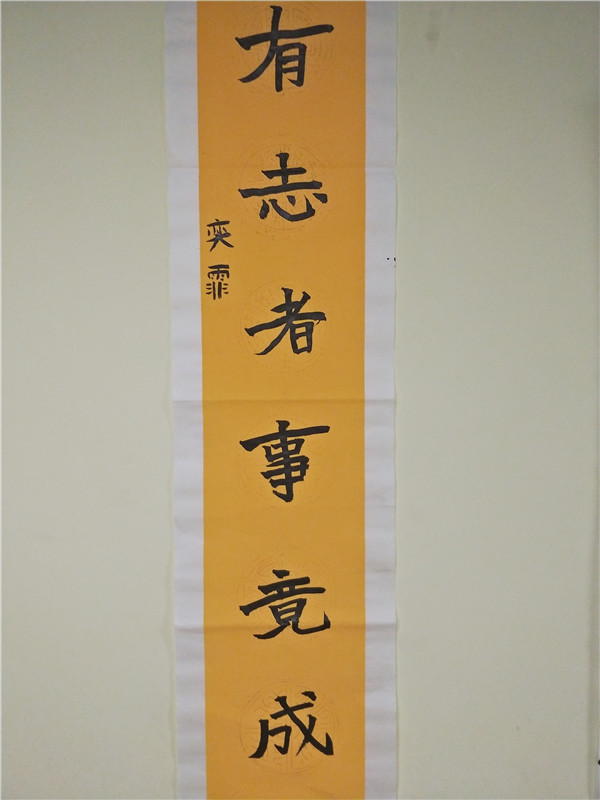 有志者事竟成
奕霏